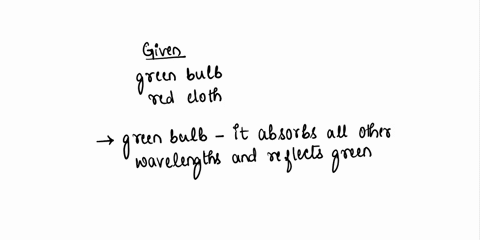 Given
green bulb
red cloth
→ green bulb - it absorbs all other
wavelengths and reflects green